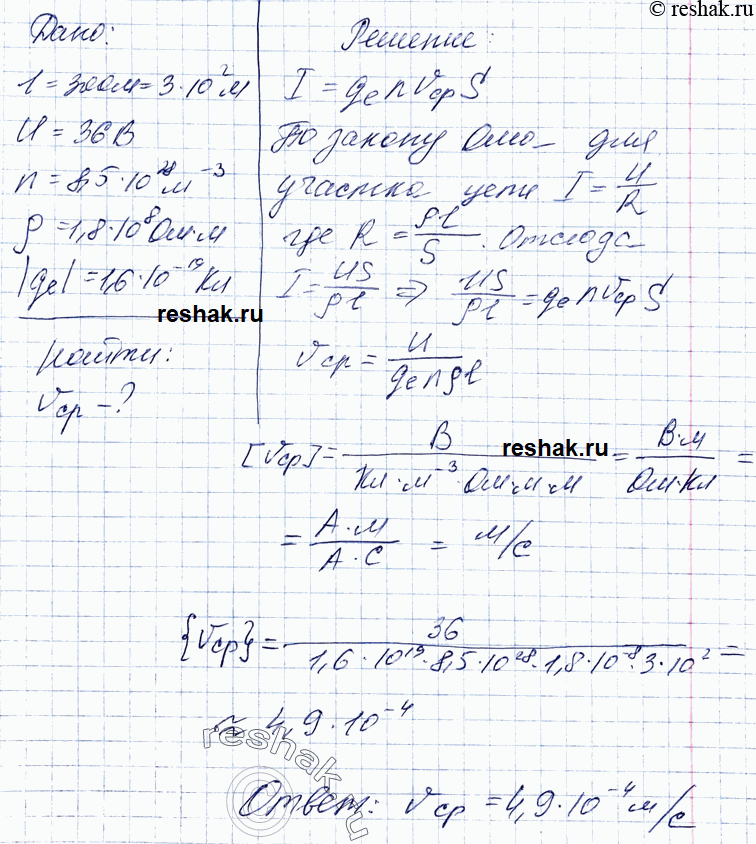 © reshak.ru
Дано:
l = 300м = 3·10²м
U = 36В
n = 8,5·10²⁸м⁻³
ρ = 1,8·10⁸Ом·м
|qe| = 1,6·10⁻¹⁹Кл
reshak.ru
Найти:
Vср – ?
Решение:
I = qe n Vср S
По закону Ома для
участка цепи I = U/R
где R = ρl/S. Отсюда
I = US/ρl ⇒ US/ρl = qe n Vср S
Vср = U/qe n ρl
[Vср] = В/Кл·м⁻³·Ом·м·м = В·м/Ом·Кл =
reshak.ru
= А·м/А·с = м/с
{Vср} = 36/1,6·10¹⁹·8,5·10²⁸·1,8·10⁻⁸·3·10² =
≈ 4,9·10⁻⁴
reshak.ru
Ответ: Vср = 4,9·10⁻⁴м/с